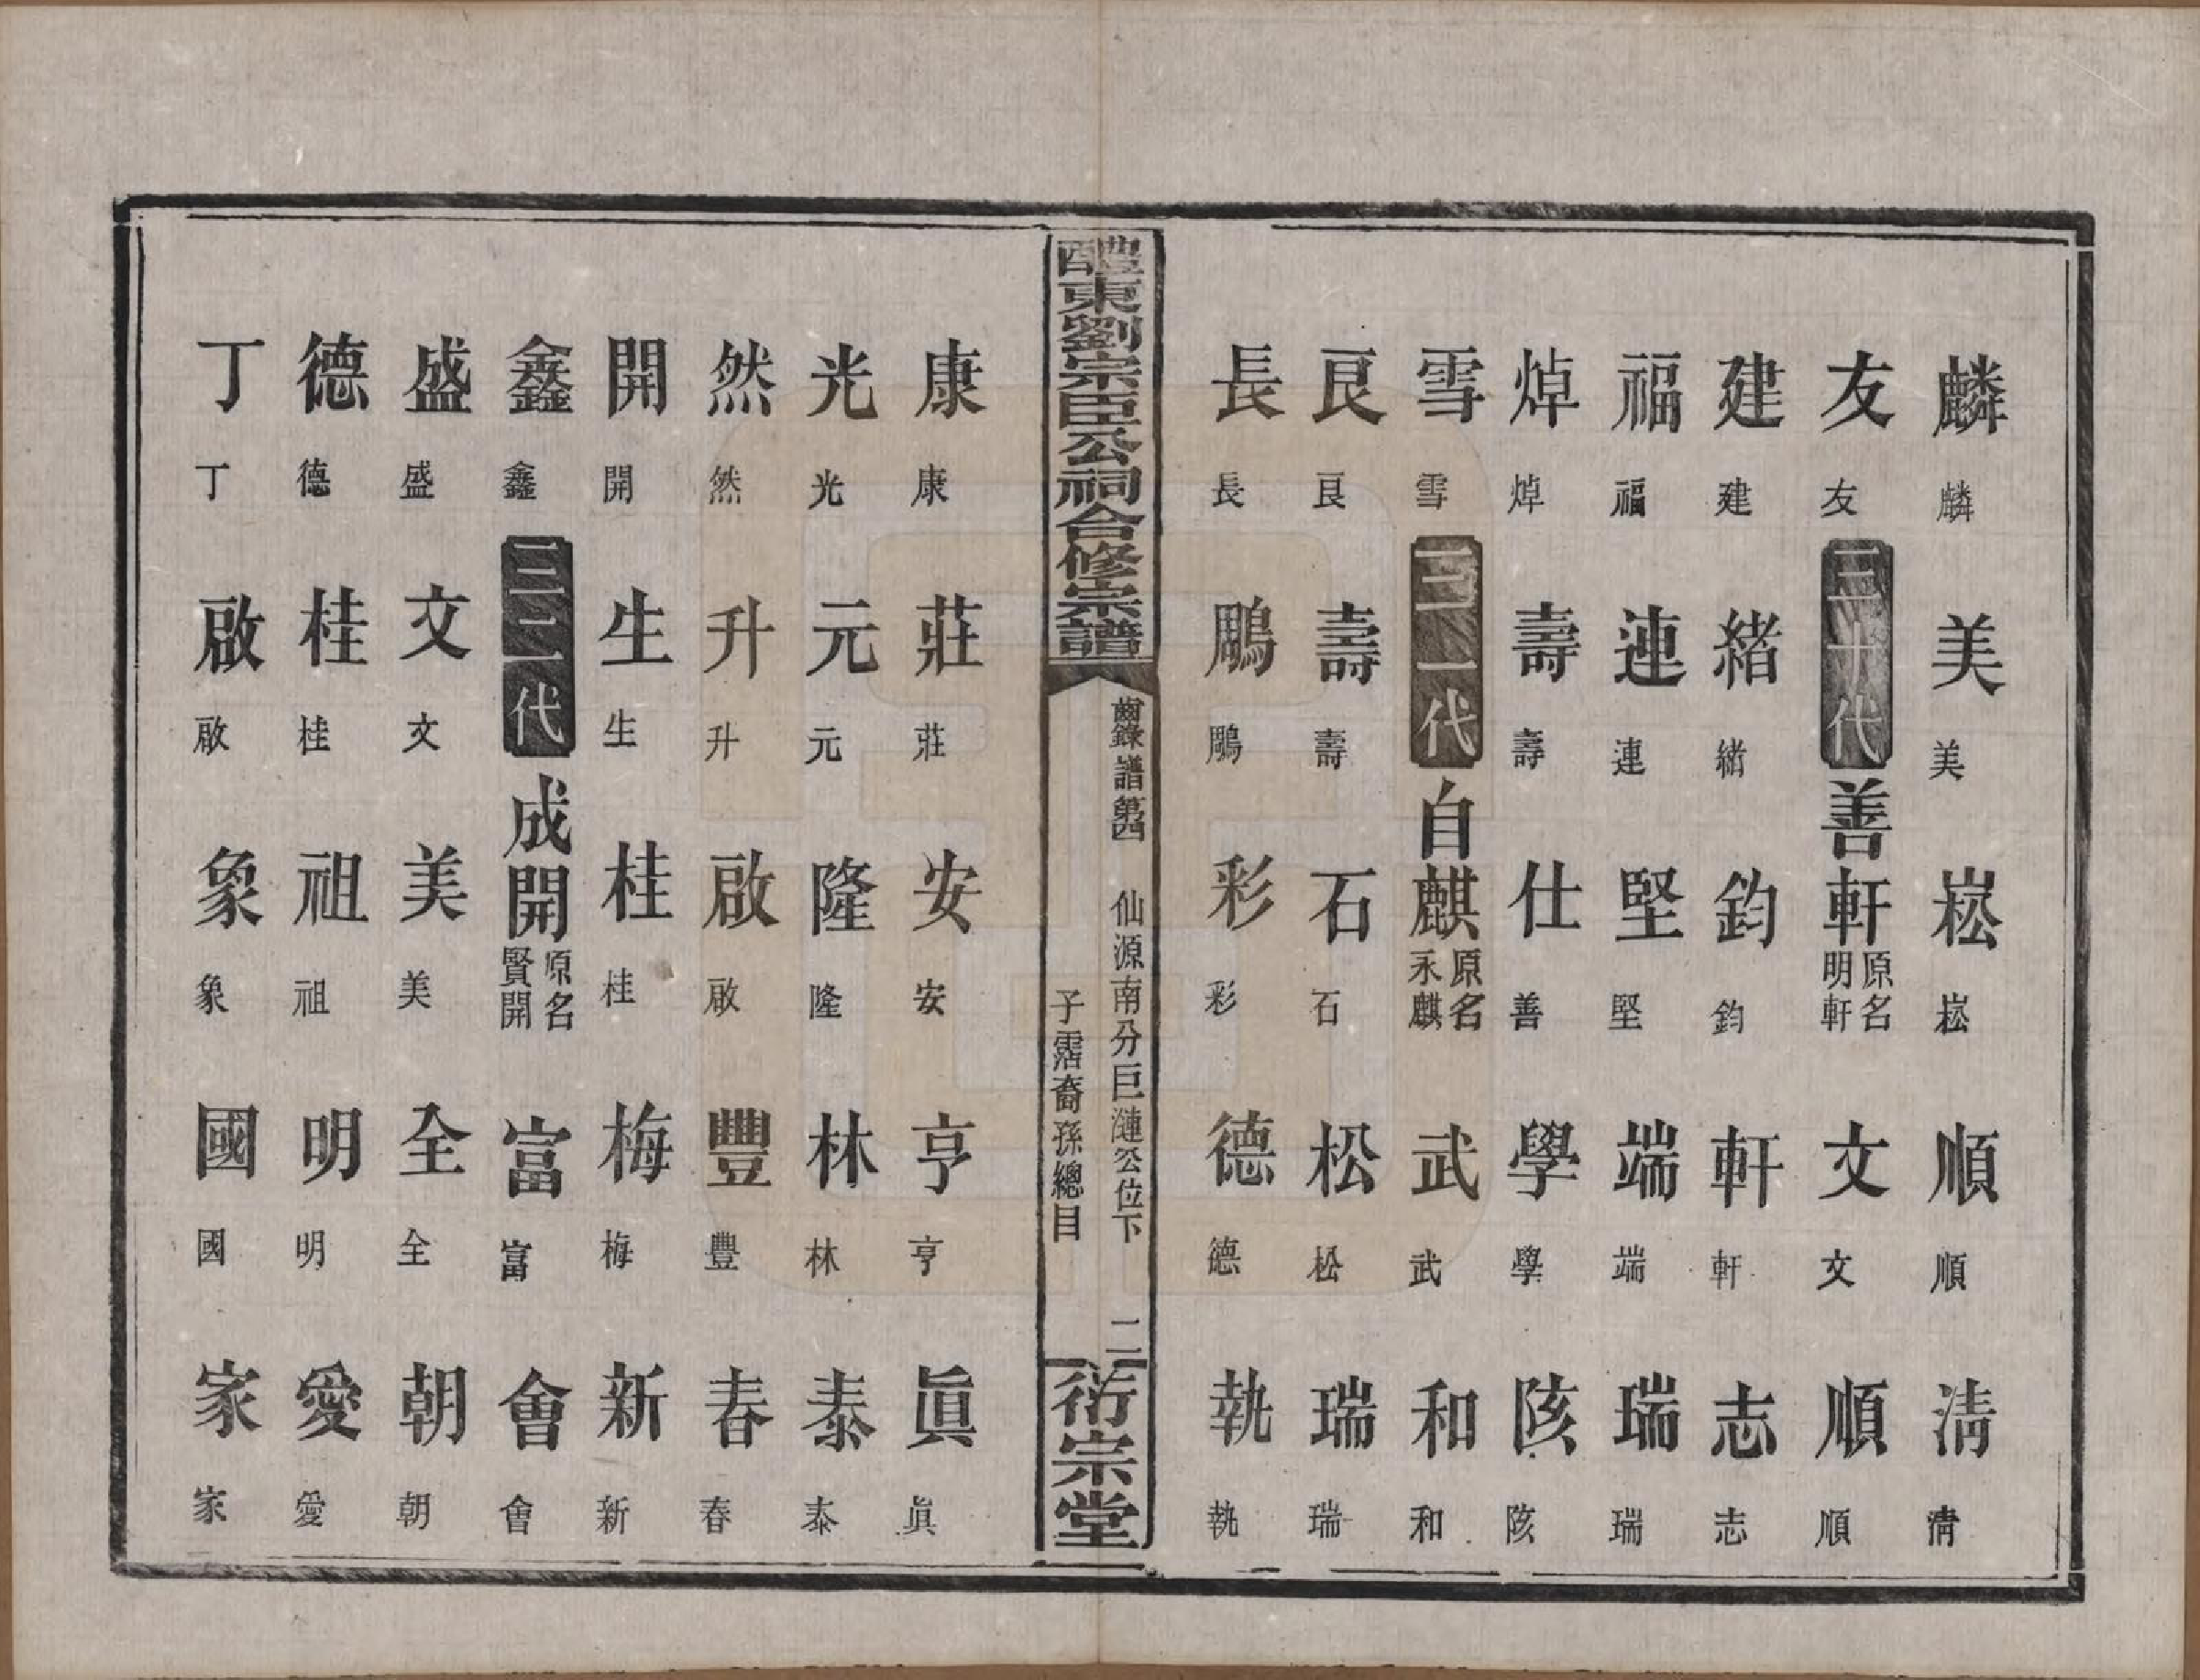 麟 麟 美 美 崧 崧 順 順 淸 淸
友 友 三十代 善軒 原名明軒 文 文 順 順
建 建 緒 緒 鈞 鈞 軒 軒 志 志
福 福 連 連 堅 堅 端 端 瑞 瑞
焯 焯 壽 壽 仕 善 學 學 陔 陔
雪 雪 三一代 自麒 原名永麒 武 武 和 和
艮 艮 壽 壽 石 石 松 松 瑞 瑞
長 長 鵰 鵰 彩 彩 德 德 執 執
醴東劉宗臣公祠合修宗譜
齒錄 譜第四 仙源南分巨漣公位下 二
子霑裔孫總目
衍宗堂
康 康 莊 莊 安 安 亨 亨 眞 眞
光 光 元 元 隆 隆 林 林 泰 泰
然 然 升 升 啟 啟 豐 豐 春 春
開 開 生 生 桂 桂 梅 梅 新 新
鑫 鑫 三二代 成開 原名賢開 富 富 會 會
盛 盛 文 文 美 美 全 全 朝 朝
德 德 桂 桂 祖 祖 明 明 愛 愛
丁 丁 啟 啟 象 象 國 國 家 家